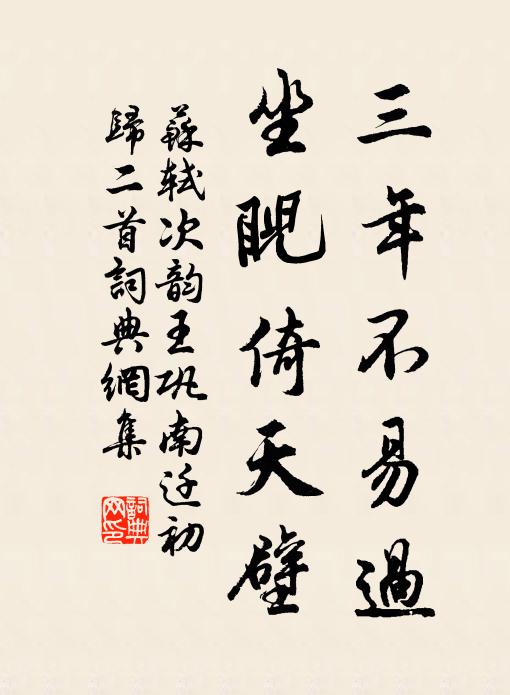 三年不易過
坐睨倚天壁
蘇軾次韵王巩南迁初
歸二首詞典網集
詞典
网印